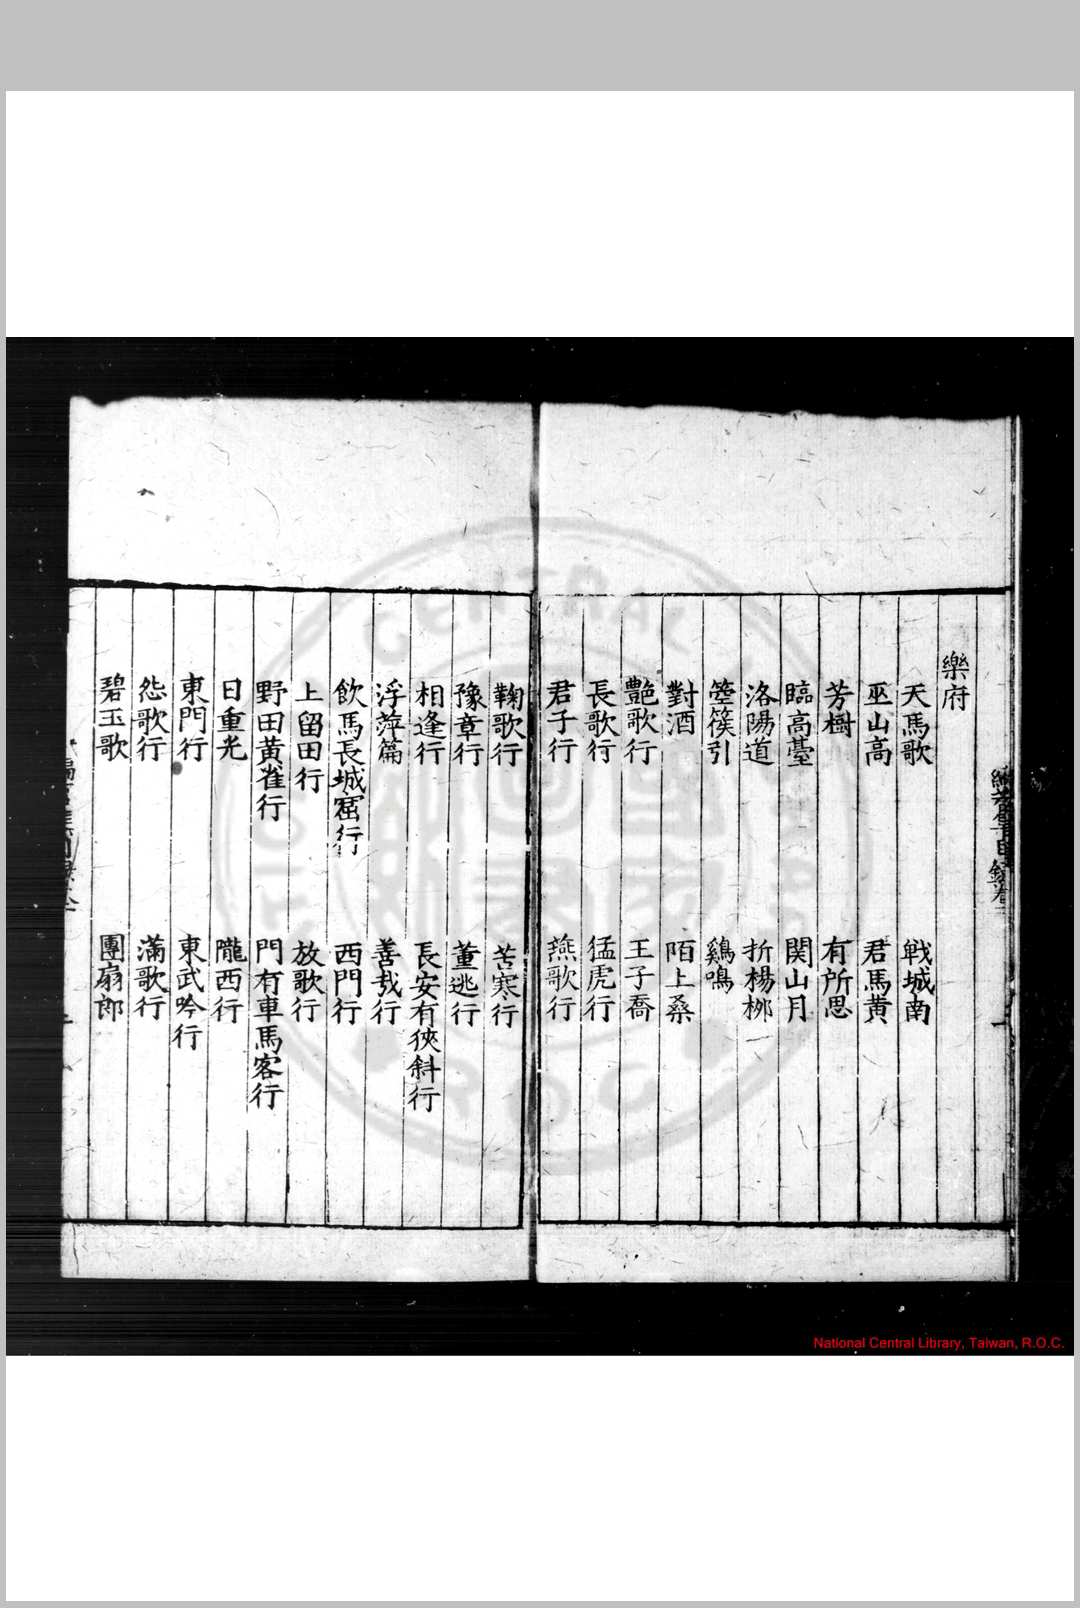 樂府
天馬歌 戰城南
巫山高 君馬黃
芳樹 有所思
臨高臺 関山月
洛陽道 折楊桞
箜篌引 鷄鳴
對酒 陌上桑
艷歌行 王子喬
長歌行 猛虎行
君子行 燕歌行
鞠歌行 苦寒行
豫章行 董逃行
相逢行 長安有狹斜行
浮萍篇 善哉行
飲馬長城窟行 西門行
上留田行 放歌行
野田黃雀行 門有車馬客行
日重光 隴西行
東門行 東武吟行
怨歌行 滿歌行
碧玉歌 團扇郎
National Central Library, Taiwan, R.O.C.